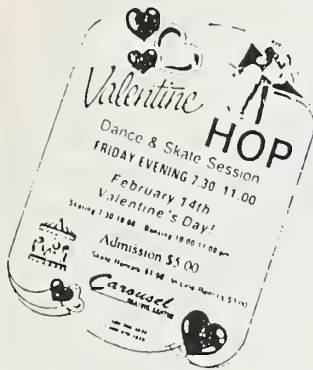 Valentine
HOP
Dance & Skate Session
FRIDAY EVENING 7.30 11.00
February 14th
Valentine's Day!
Skating 7.30 10.00 Dancing 10.00 11.00 pm
Admission $5.00
Skate Rentals
Carousel